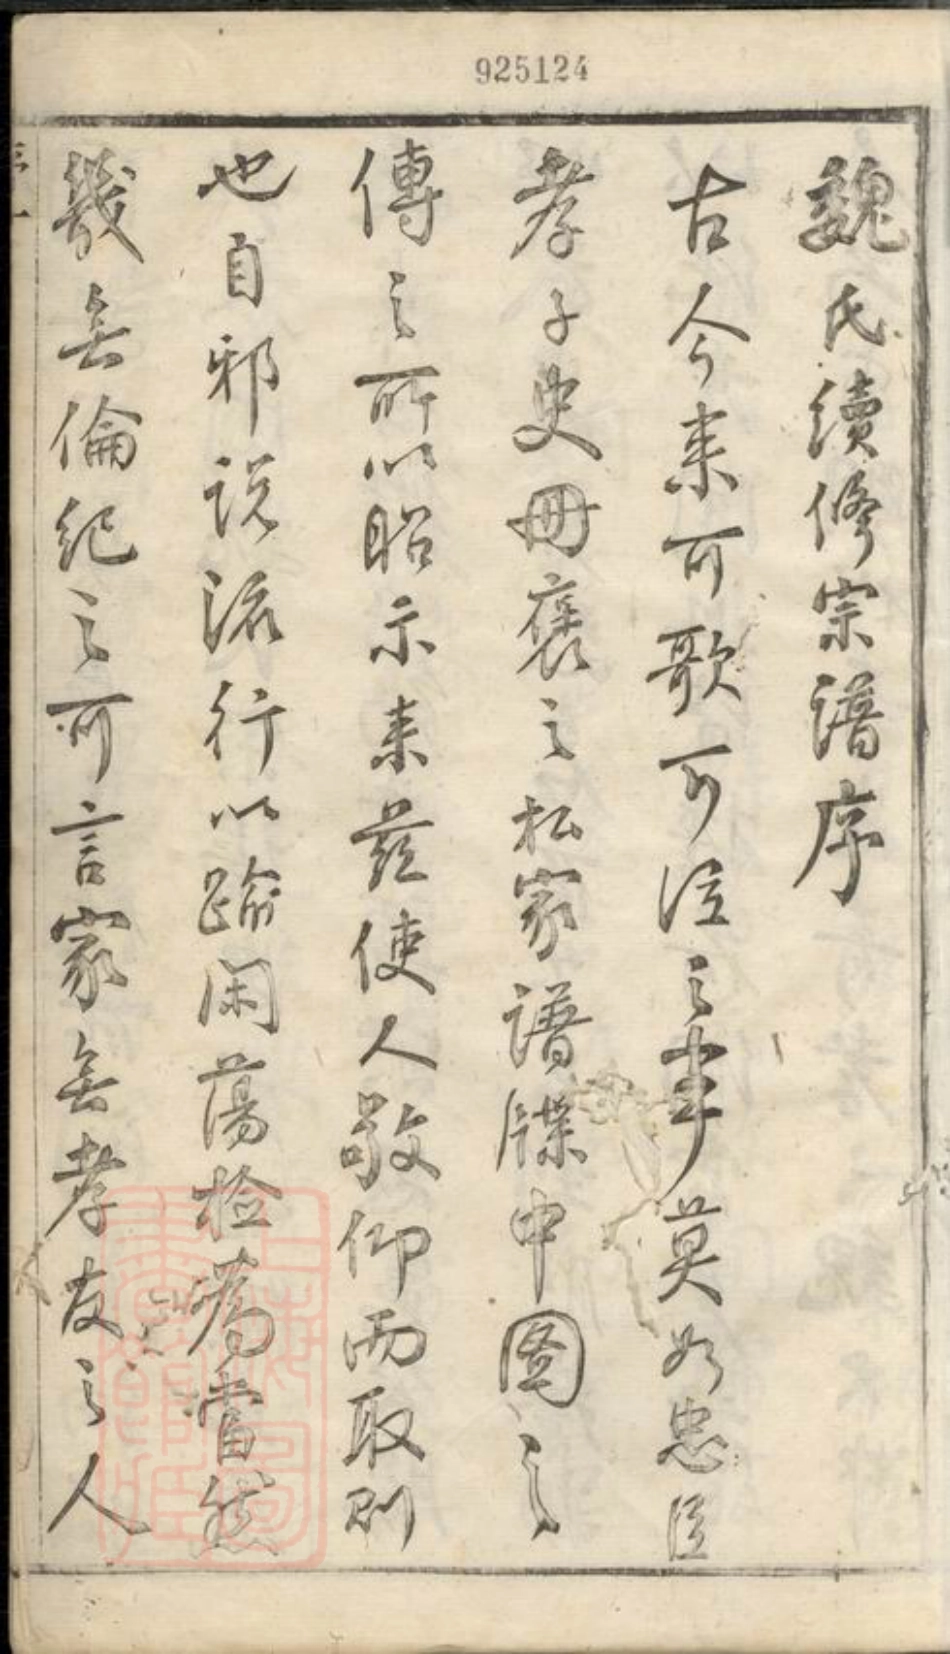 925124
魏氏續修宗譜序
古今來可歌可泣之事莫如忠臣
孝子史冊褒之私家譜牒中圖之
傳之所以昭示來茲使人敬仰而取則
也自邪說流行以踰閑蕩檢為當然
幾無倫紀之可言家無孝友之人